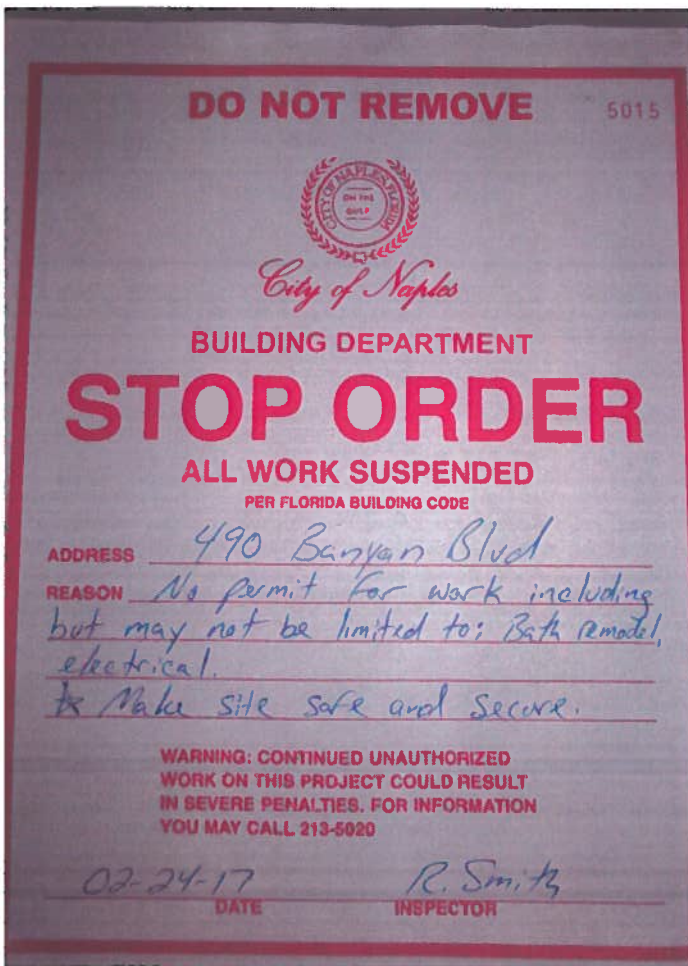 DO NOT REMOVE
5015
CITY OF NAPLES, FLORIDA
ON THE
GULF
City of Naples
BUILDING DEPARTMENT
STOP ORDER
ALL WORK SUSPENDED
PER FLORIDA BUILDING CODE
ADDRESS 490 Banyan Blvd
REASON No permit for work including
but may not be limited to: Bath remodel,
electrical.
Make site safe and secure.
WARNING: CONTINUED UNAUTHORIZED
WORK ON THIS PROJECT COULD RESULT
IN SEVERE PENALTIES. FOR INFORMATION
YOU MAY CALL 213-5020
02-24-17 R. Smith
DATE INSPECTOR